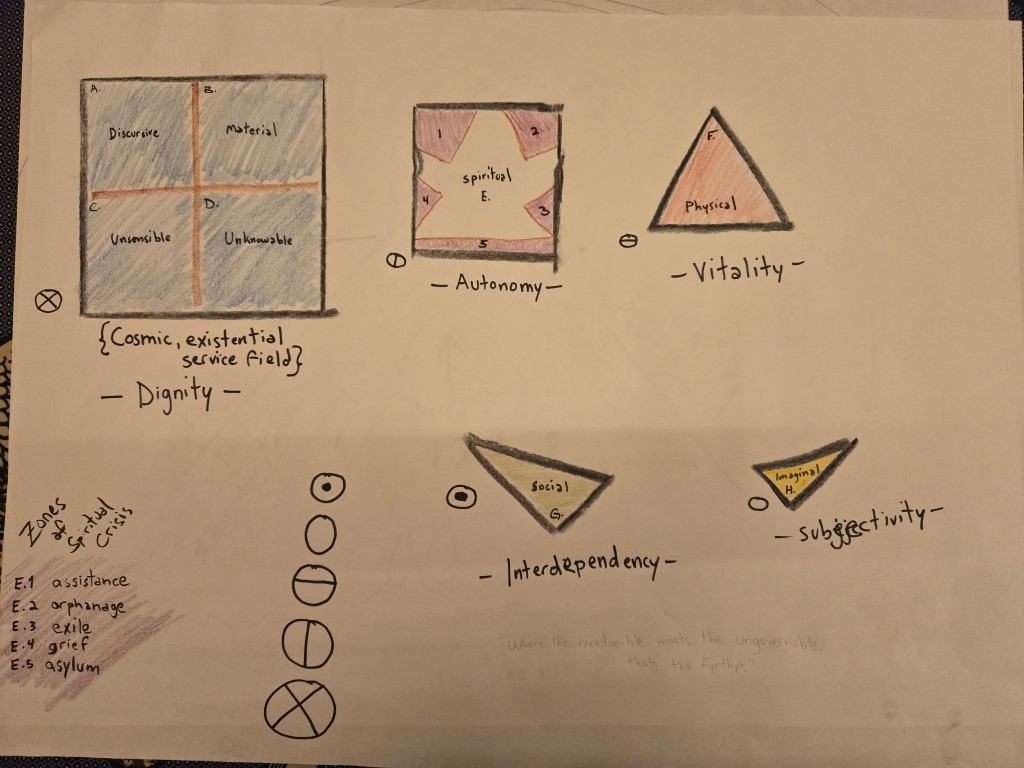 A.
Discursive
B.
Material
C.
Unsensible
D.
Unknowable
{Cosmic, existential
service field}
- Dignity -
1
2
spiritual
E.
4
3
5
- Autonomy -
F.
Physical
- Vitality -
Social
G.
- Interdependency -
Imaginal
H.
- subjectivity -
Zones
of
Spiritual
Crisis
E.1 assistance
E.2 orphanage
E.3 exile
E.4 grief
E.5 asylum
"Where the irreducible meets the ungovernable,
that's the